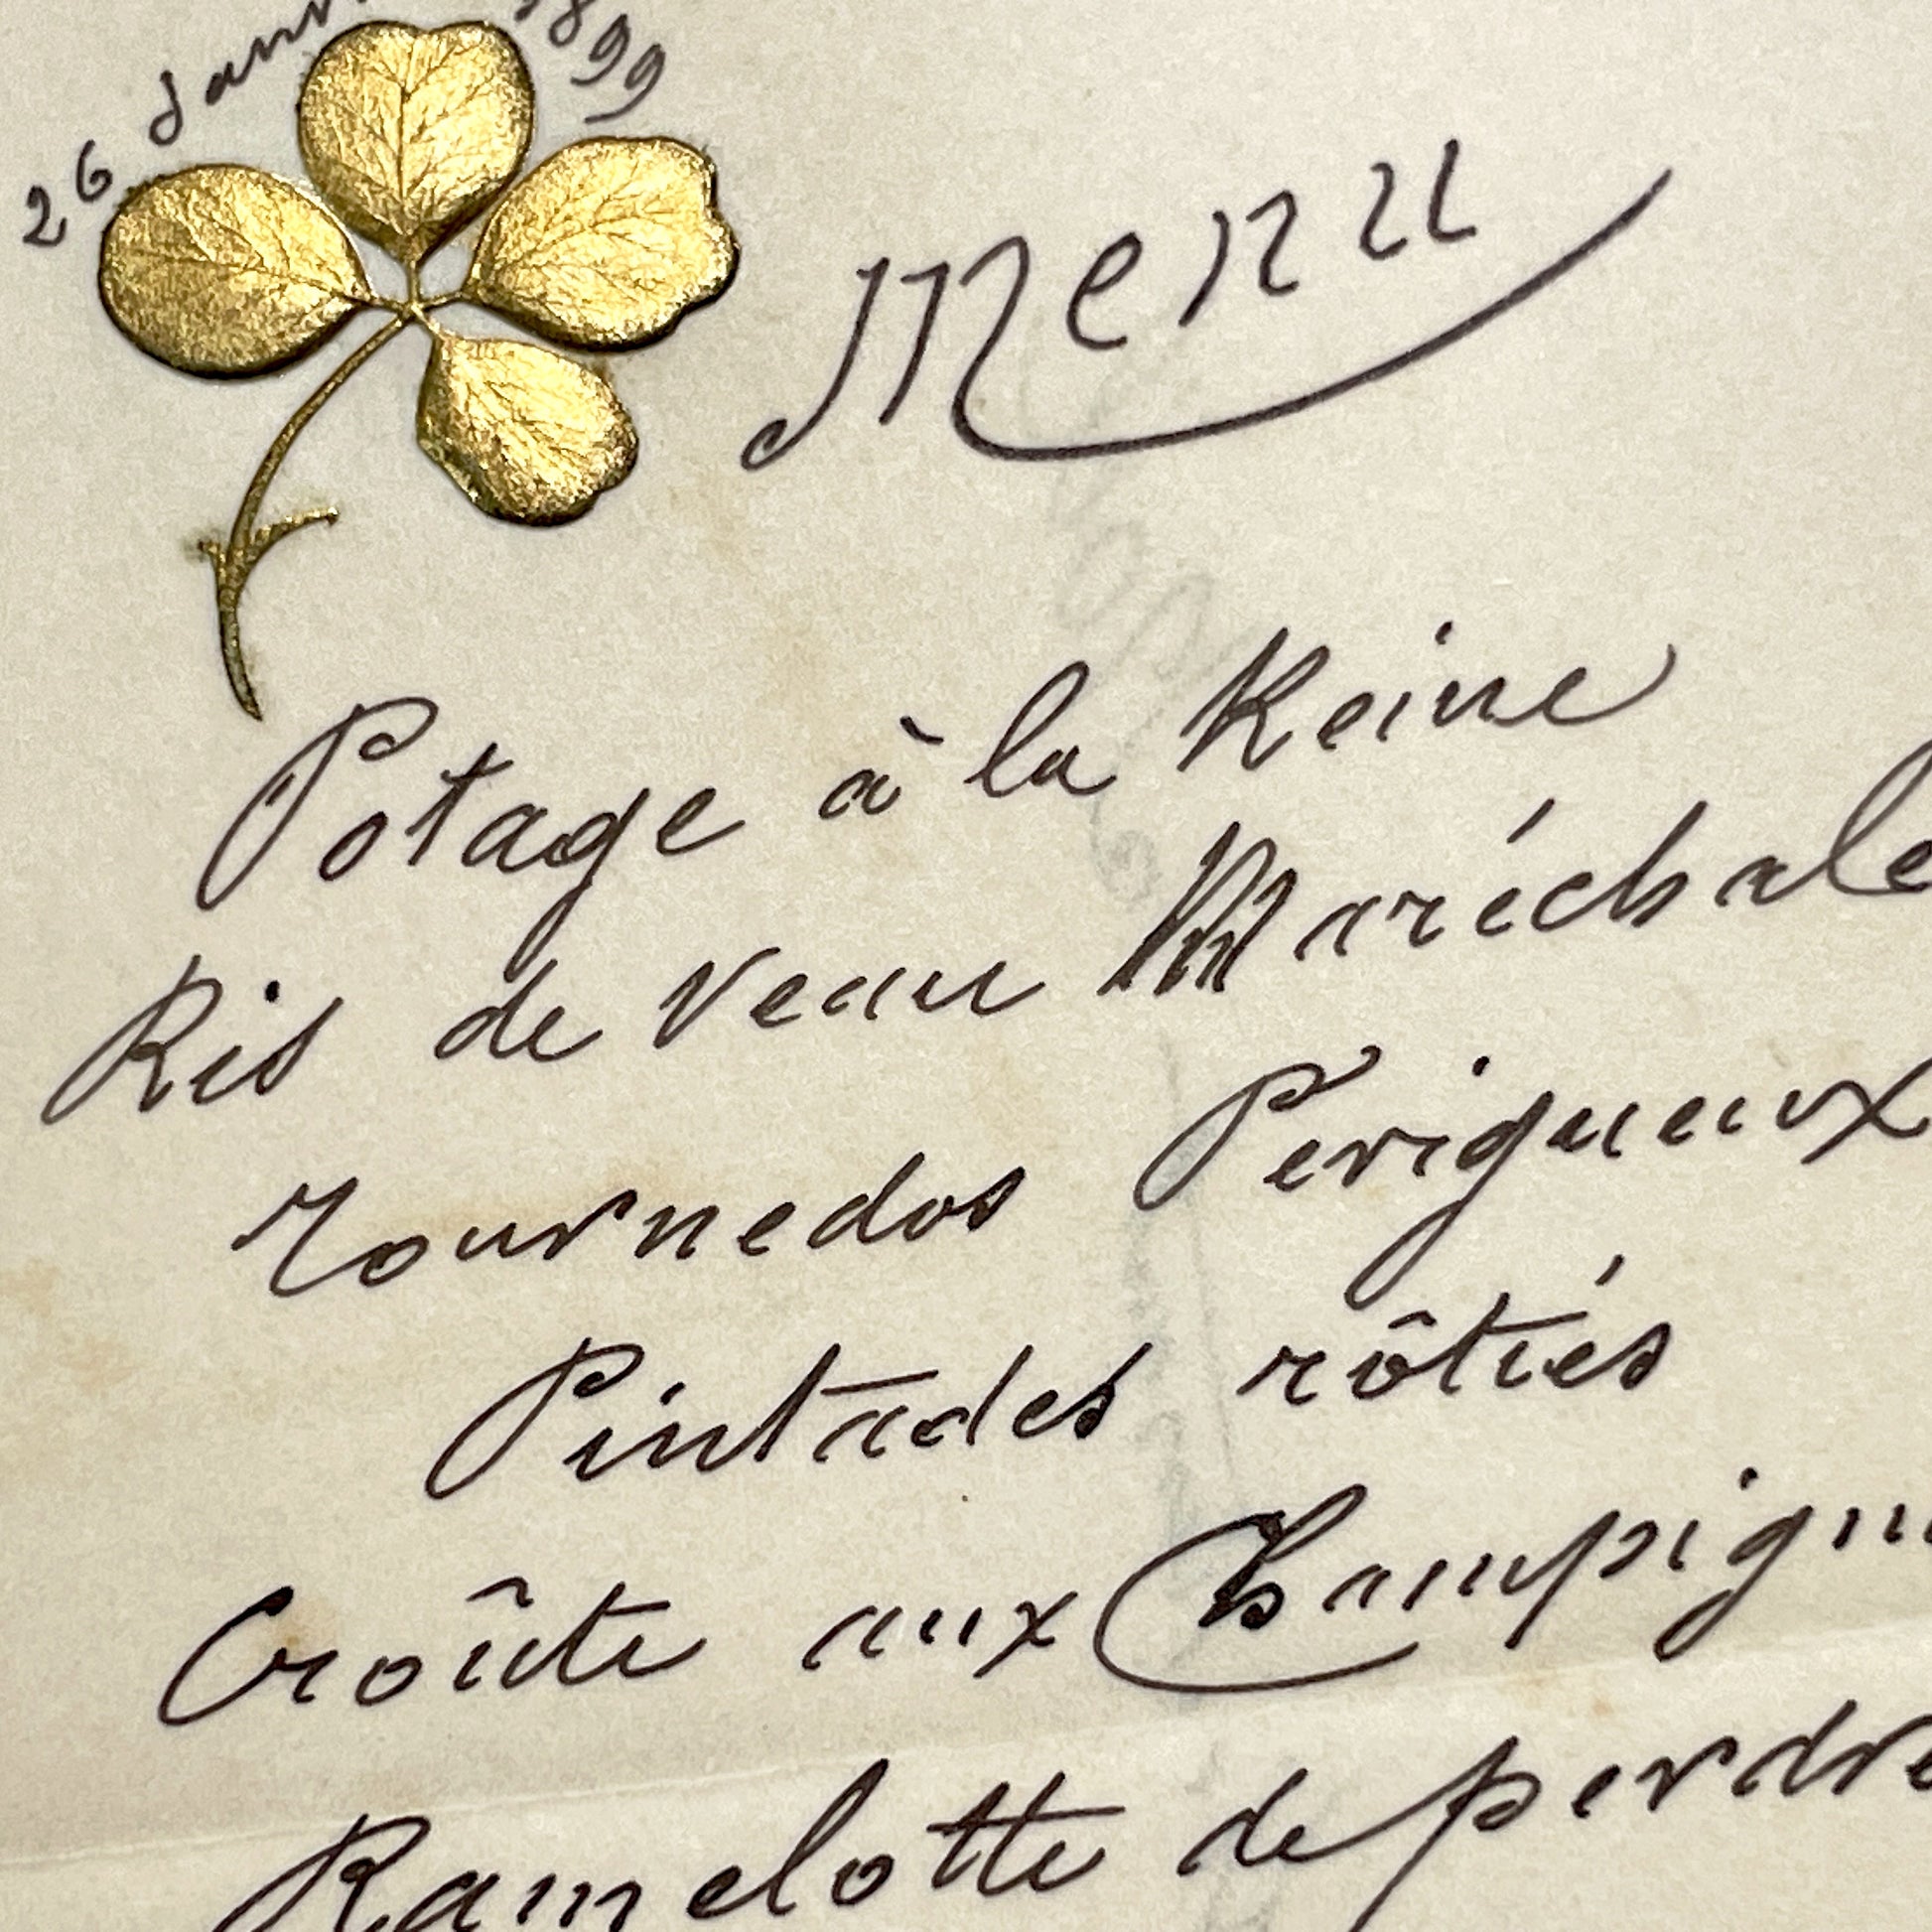 26 Janv 1899
Menu
Potage à la Reine
Ris de Veau Maréchale
Tournedos Perigueux
Pintades rôtiés
Croûte aux Champign
Ramelotte de perdre